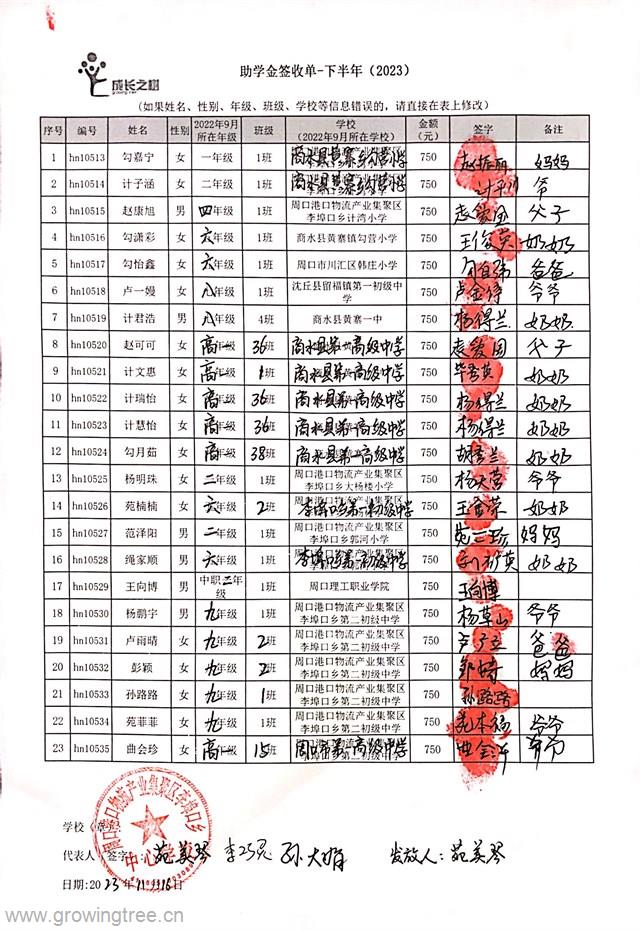 成长之树
助学金签收单-下半年（2023）
（如果姓名、性别、年级、班级、学校等信息错误的，请直接在表上修改）
序号 编号 姓名 性别 2022年9月所在年级 班级 学校（2022年9月所在学校） 金额（元） 签字 备注
1 hn10513 勾嘉宁 女 一年级 1班 商水县黄寨乡勾营小学 750 赵振丽 妈妈
2 hn10514 计子涵 女 二年级 1班 商水县黄寨乡勾营小学 750 爷
3 hn10515 赵康旭 男 四年级 1班 周口港口物流产业集聚区李埠口乡计湾小学 750 袁爱国 父子
4 hn10516 勾潇彩 女 六年级 1班 商水县黄寨镇勾营小学 750 王俊英 奶奶
5 hn10517 勾怡鑫 女 六年级 1班 周口市川汇区韩庄小学 750 爸爸
6 hn10518 卢一嫚 女 八年级 1班 沈丘县留福镇第一初级中学 750 爷爷
7 hn10519 计君浩 男 八年级 4班 商水县黄寨一中 750 杨得兰 奶奶
8 hn10520 赵可可 女 高一年级 36班 商水县第一高级中学 750 袁爱国 父子
9 hn10521 计文惠 女 高一年级 1班 商水县第一高级中学 750 奶奶
10 hn10522 计瑞怡 女 高一年级 36班 商水县第一高级中学 750 杨得兰 奶奶
11 hn10523 计慧怡 女 高一年级 36班 商水县第一高级中学 750 杨得兰 奶奶
12 hn10524 勾月茹 女 高一年级 38班 商水县第一高级中学 750 奶奶
13 hn10525 杨明珠 女 二年级 1班 周口港口物流产业集聚区李埠口乡大杨楼小学 750 爷爷
14 hn10526 苑楠楠 女 六年级 2班 李埠口乡第一初级中学 750 奶奶
15 hn10527 范泽阳 男 二年级 1班 周口港口物流产业集聚区李埠口乡郭河小学 750 妈妈
16 hn10528 绳家顺 男 六年级 1班 750 奶奶
17 hn10529 王向博 男 中职二年级 1班 周口理工职业学院 750 王向博
18 hn10530 杨鹏宇 男 九年级 1班 周口港口物流产业集聚区李埠口乡第二初级中学 750 杨草山 爷爷
19 hn10531 卢雨晴 女 九年级 2班 周口港口物流产业集聚区李埠口乡第二初级中学 750 爸爸
20 hn10532 彭颖 女 九年级 2班 周口港口物流产业集聚区李埠口乡第二初级中学 750 妈妈
21 hn10533 孙路路 女 九年级 1班 周口港口物流产业集聚区李埠口乡第二初级中学 750 孙路路
22 hn10534 苑菲菲 女 九年级 1班 周口港口物流产业集聚区李埠口乡第二初级中学 750 爷爷
23 hn10535 曲会珍 女 高一年级 15班 周口市第一高级中学 750 爷爷
学校（章）：
周口港口物流产业集聚区李埠口乡中心学校
代表人签字： 苑美琴 李巧灵 孙大娟 发放人：苑美琴
日期:2023年11月16日
www.growingtree.cn